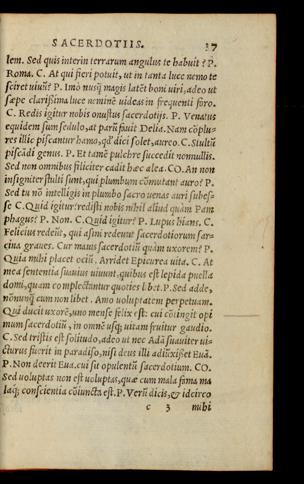 SACERDOTIIS. 37
lem. Sed quis interin terrarum angulus te habuit? P.
Roma. C. At qui fieri potuit, ut in tanta luce nemo te
sciret uiuũ? P. Imò nusq̃ magis latẽt boni uiri, adeo ut
sæpe clarißima luce neminẽ uideas in frequenti foro.
C. Redis igitur nobis onustus sacerdotijs. P. Venatus
equidem sum sedulo, at parũ fauit Delia. Nam cõplu-
res illic piscantur hamo, qd' dici solet, aureo. C. Stultũ
piscãdi genus. P. Et tamẽ pulchre succedit nonnullis.
Sed non omnibus fœliciter cadit hæc alea. CO. An non
insigniter stulti sunt, qui plumbum cõmutant auro? P.
Sed tu nõ intelligis in plumbo sacro uenas auri subes-
se C. Quid igitur? redisti nobis nihil aliud quàm Pam
phagus? P. Non. C. Quid igitur? P. Lupus hians. C.
Felicius redeũt, qui asini redeunt sacerdotiorum sar-
cina graues. Cur mauis sacerdotiũ quàm uxorem? P.
Quia mihi placet ociũ. Arridet Epicurea uita. C. At
mea sententia suauius uiuunt, quibus est lepida puella
domi, quam complectantur quoties libet. P. Sed adde,
nõnunq̃ cum non libet. Amo uoluptatem perpetuam.
Qui ducit uxorẽ, uno mense felix est: cui cõtingit opi
mum sacerdotiũ, in omnẽ usq; uitam fruitur gaudio.
C. Sed tristis est solitudo, adeo ut nec Adã suauiter ui-
cturus fuerit in paradiso, nisi deus illi adiũxißet Euã.
P. Non deerit Eua, cui sit opulentũ sacerdotium. CO.
Sed uoluptas non est uoluptas, quæ cum mala fama ma
laq; conscientia cõiuncta est. P. Verũ dicis, & idcirco
c 3 mihi